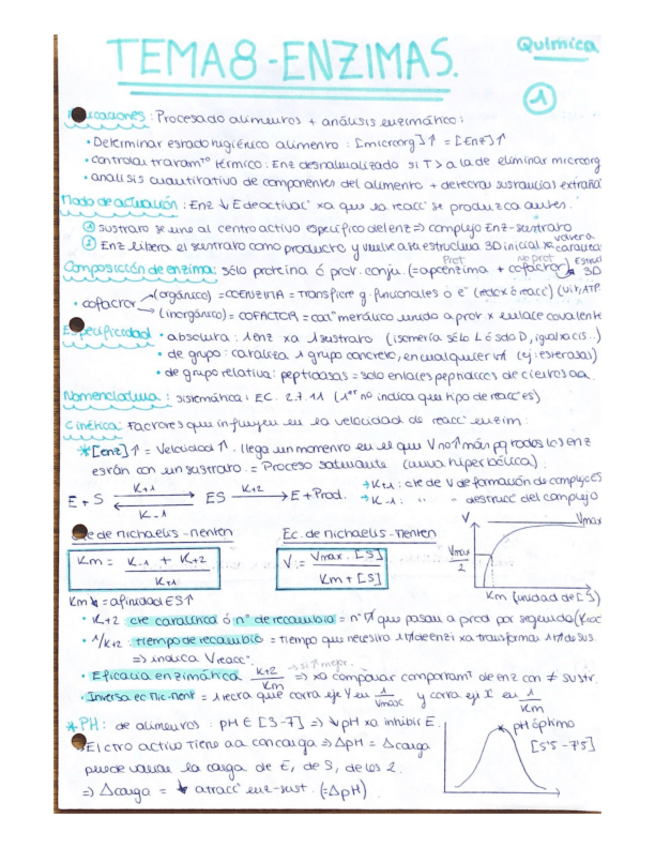 TEMA 8 - ENZIMAS.
Química
1
Aplicaciones: Procesado alimentos + análisis enzimático:
• Determinar estado higiénico alimento: [microorg]↑ = [Enz]↑
• controlar tratamto térmico: Enz desnaturalizado si T > a la de eliminar microorg
• análisis cuantitativo de componentes del alimento + detectar sustancias extrañas
Modo de actuación: Enz ↓ E de activac° xa que la reacc° se produzca antes.
① sustrato se une al centro activo específico del enz ⇒ complejo Enz-sustrato
② Enz libera el sustrato como producto y vuelve a su estructura 3D inicial xa volver a
Composición de enzima: sólo proteína ó prot. conju. (= apoenzima + cofactor) Prot No prot Estruc 3D
• cofactor → (orgánico) = COENZIMA = transfiere g. funcionales o e⁻ (redox ó reacc) (vit, ATP
→ (inorgánico) = COFACTOR = cat⁺ metálico unido a prot x enlace covalente
Especificidad • absoluta: 1 enz xa 1 sustrato (isomería sólo L ó sólo D, igual xa cis..)
• de grupo: cataliza 1 grupo concreto, en cualquier (ej: esterasas)
• de grupo relativa: peptidasas = solo enlaces peptídicos de ciertos aa.
Nomenclatura: sistemática: EC. 2.7.11 (1er nº indica que tipo de reacc° es)
Cinética: Factores que influyen en la velocidad de reacc° enzim:
*[enz]↑ = Velocidad↑. llega un momento en el que V no↑ más pq todos los enz
están con un sustrato. = Proceso saturante (curva hiperbólica).
E + S K+1 K-1 ES K+2 → E + Prod.
→ K+1: cte de V de formación de complejo ES
→ K-1: " " destrucc° del complejo
Cte de michaelis-menten
Ec. de michaelis-menten
V Vmax
Km = K-1 + K+2 / K+1
V = Vmax · [S] / Km + [S]
Vmax / 2
Km (unidad de [S])
Km ↓ = afinidad ES↑
• K+2: cte catalítica ó nº de recambio = nº que pasan a prod por segundo (Kcat
• 1/K+2: tiempo de recambio = tiempo que necesita de enzi xa transformar de sus.
⇒ indica V reacc°.
• Eficacia enzimática K+2 / Km → si ↑ mejor. ⇒ xa comparar comportamto de enz con ≠ sustr.
• Inversa ec Mic-Ment = 1 recta que corta eje Y en 1/Vmax y corta eje X en 1/Km
*PH: de alimentos: pH ∈ [3-7] ⇒ ↓pH xa inhibir E.
pH óptimo
[5'5 - 7'5]
El ctro activo tiene aa con carga ⇒ ΔpH = Δcarga
puede variar la carga de E, de S, de los 2.
⇒ Δcarga = ↓ atracc° enz-sust. (=ΔpH)